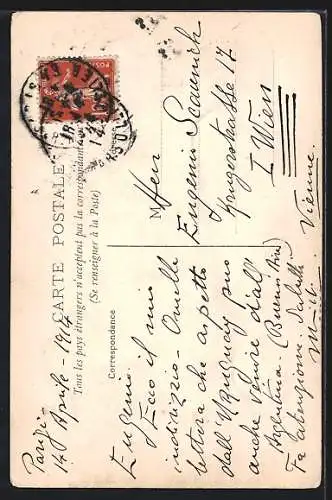 CARTE POSTALE
Tous les pays étrangers n'acceptent pas la correspondance au
(Se renseigner à la Poste)
Correspondance
Parigi
14 Aprile - 1914
Eugenio.
Ecco il mio
indirizzo - Quella
lettera che aspetto
dall'Uruguay puo
anche venire dall'
Argentina. (Buenos Aires)
Fa attenzione. Saluti
M
Herr
Eugenio
Krugerstrasse 17
I Wien
Vienne.